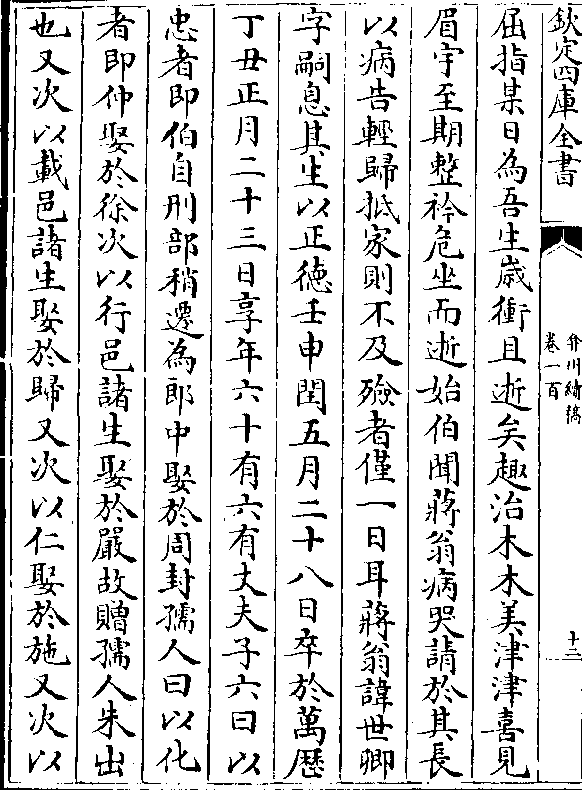 欽定四庫全書
弇州續稿
卷一百
十二
屈指某日為吾生歲衝且逝矣趣治木木美津津喜見
眉宇至期整衿危坐而逝始伯聞蔣翁病哭請於其長
以病告輕歸抵家則不及殮者僅一日耳蔣翁諱世卿
字嗣息其生以正德壬申閏五月二十八日卒於萬歷
丁丑正月二十三日享年六十有六有丈夫子六曰以
忠者即伯自刑部稍遷為郎中娶於周封孺人曰以化
者即仲娶於徐次以行邑諸生娶於嚴故贈孺人朱出
也又次以載邑諸生娶於歸又次以仁娶於施又次以